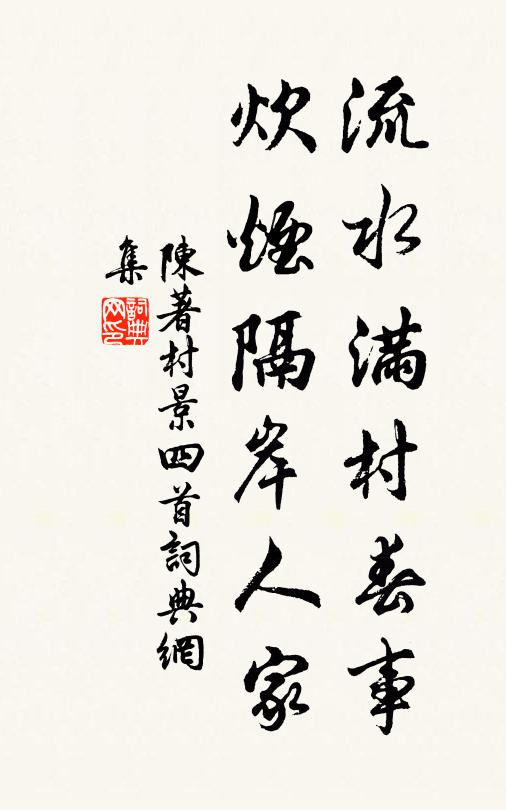 流水滿村春事
炊煙隔岸人家
陳著村景四首詞典網
集
詞典網印